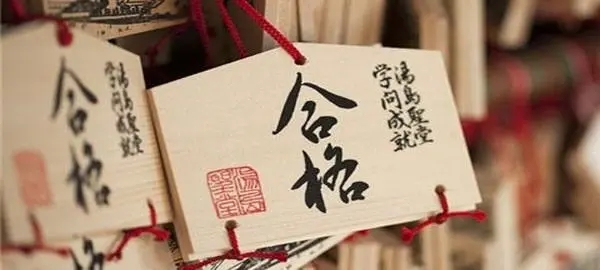 湯島聖堂
学問成就
合格
湯島聖堂
湯島聖堂
学問成就
合格